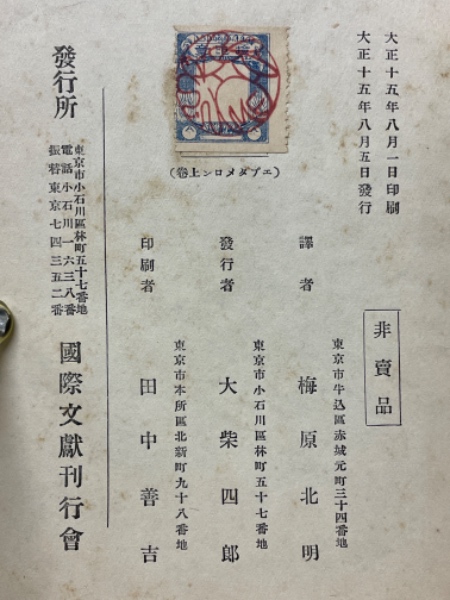 大正十五年八月一日印刷
大正十五年八月五日發行
非賣品
(エプタメロン上卷)
譯者
東京市牛込區赤城元町三十四番地
梅原北明
發行者
東京市小石川區林町五十七番地
大柴四郎
印刷者
東京市本所區北新町九十八番地
田中善吉
發行所
東京市小石川區林町五十七番地
電話小石川一六三八番
振替東京七四三五二番
國際文獻刊行會